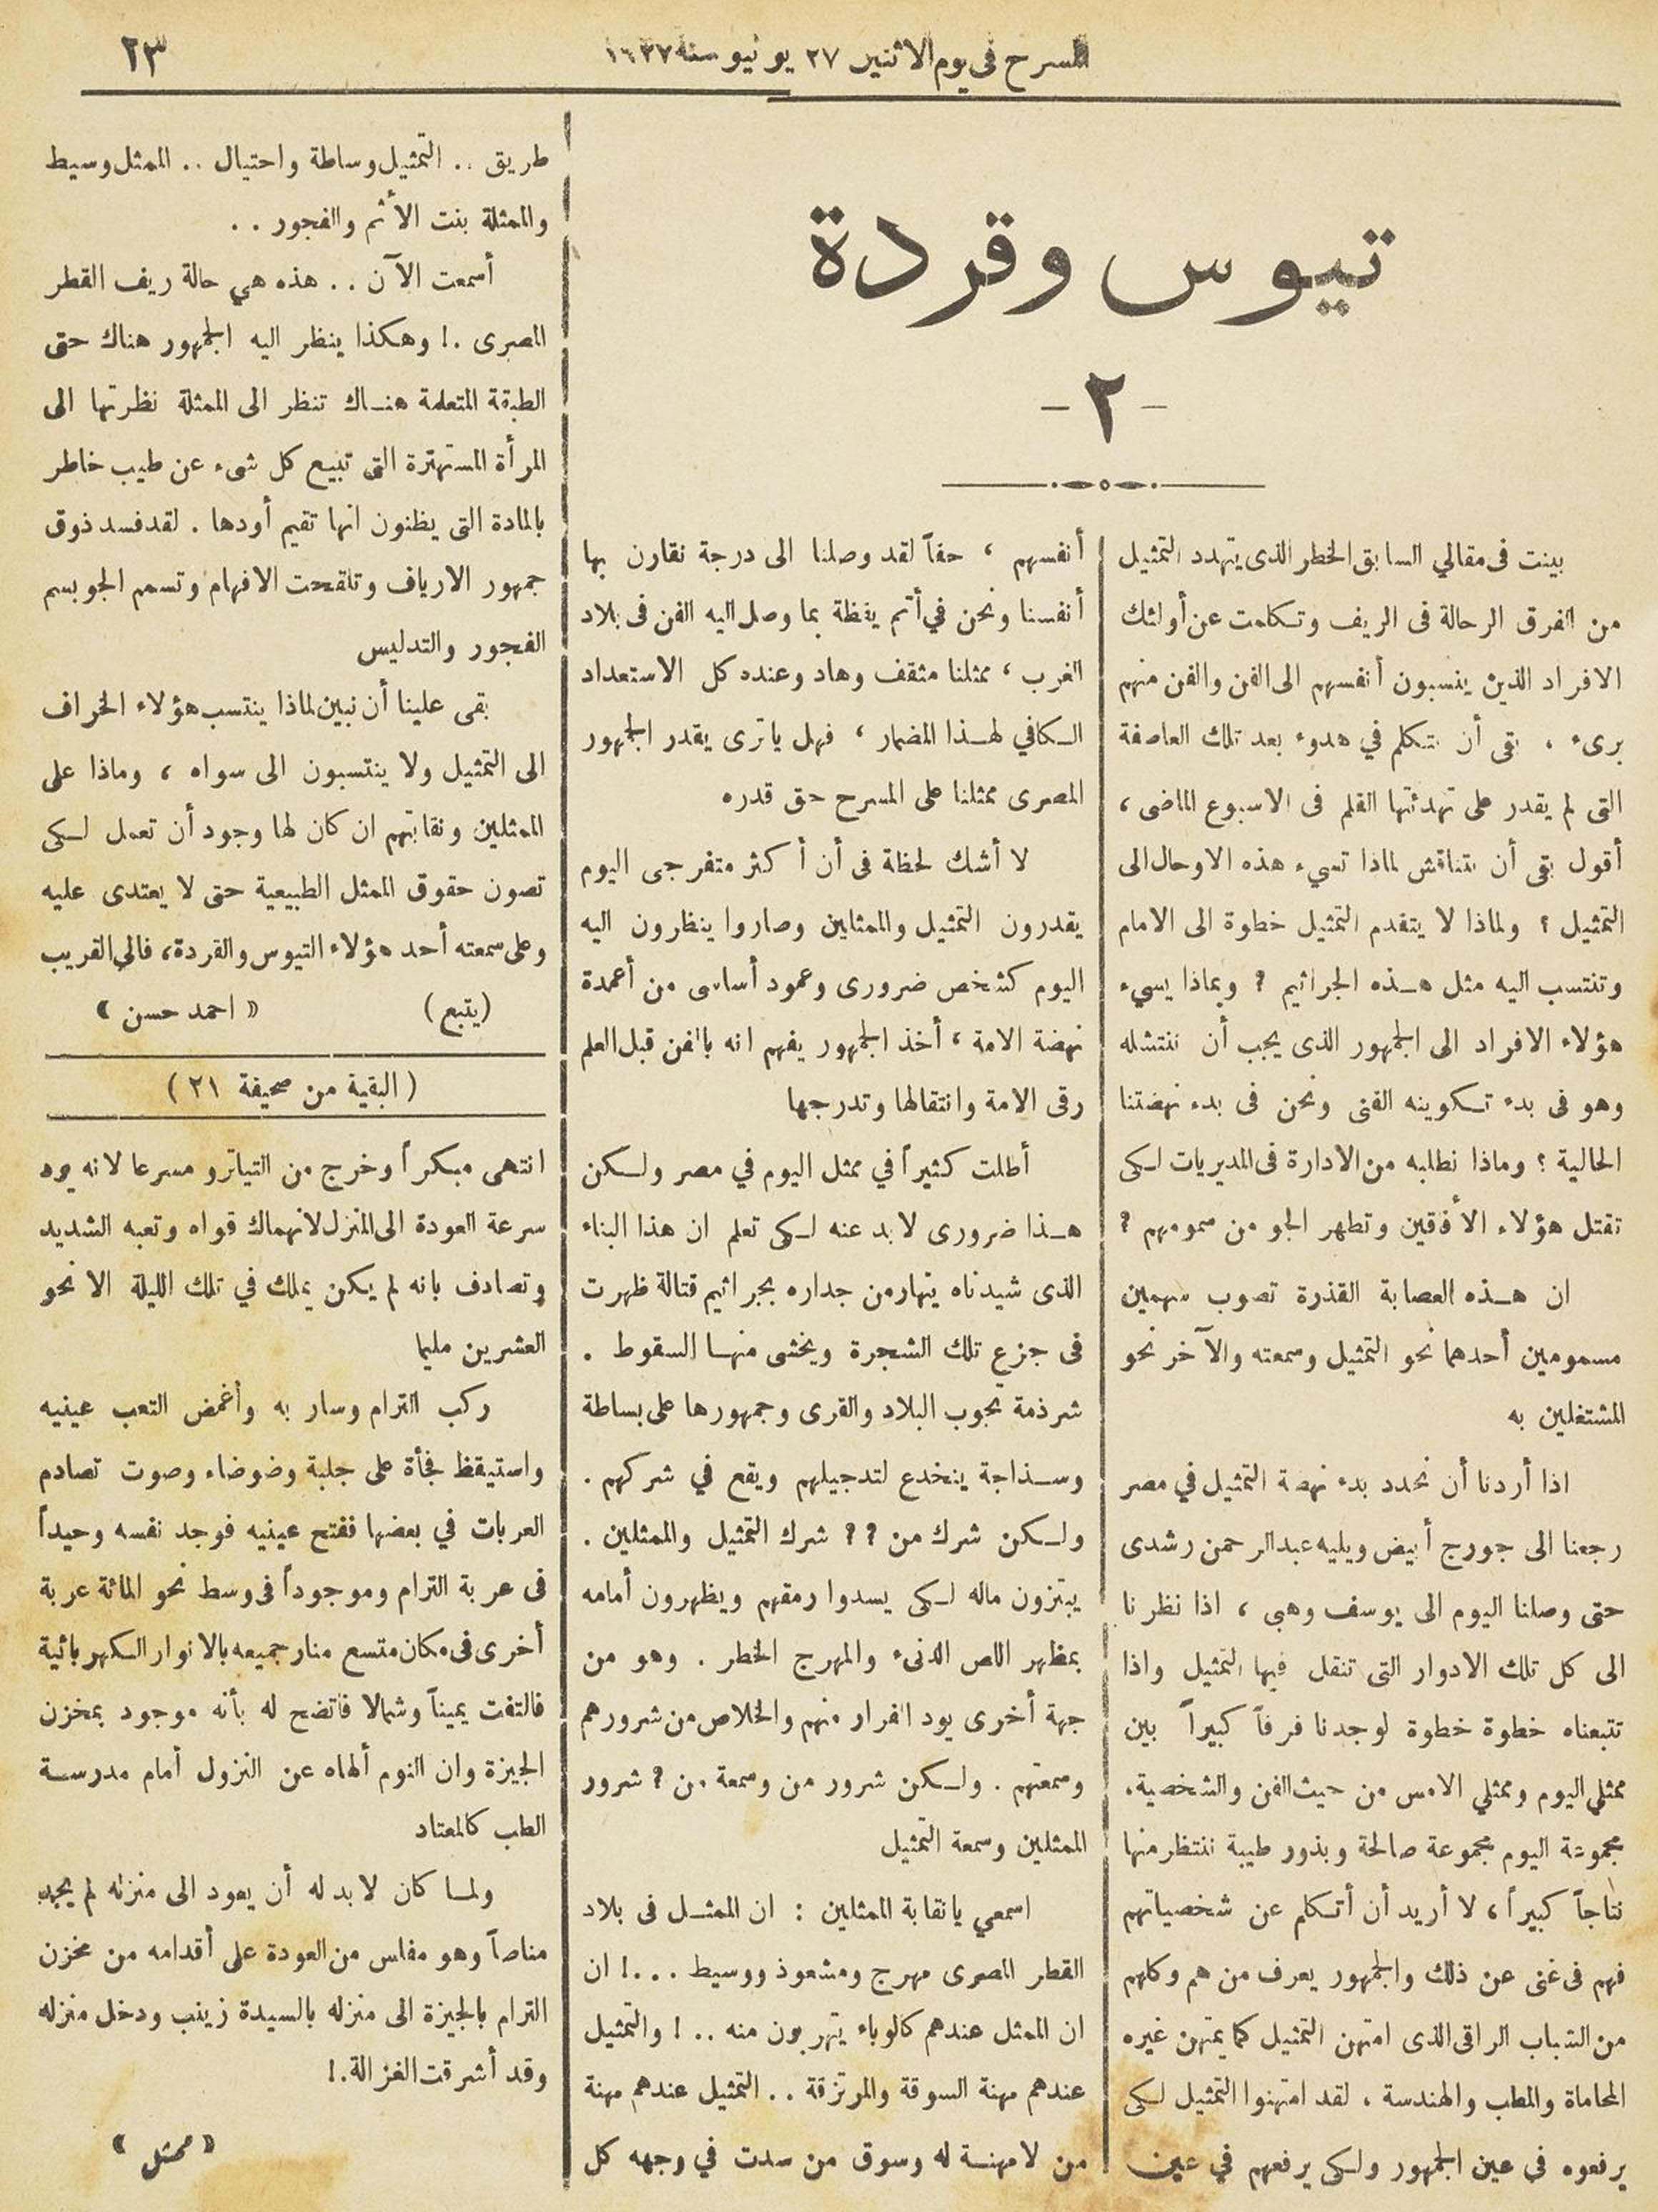 المسرح فى يوم الاثنين ٢٧ يونيو سنة ١٩٢٧
٢٣
تيوس وقردة
- ٢ -
بينت فى مقالي السابق الخطر الذى يتهدد التمثيل
من الفرق الرحالة فى الريف وتكلمت عن أولئك
الافراد الذين ينسبون أنفسهم الى الفن والفن منهم
برىء . بقى أن نتكلم في هدوء بعد تلك العاصفة
التى لم يقدر على تهدئتها القلم فى الاسبوع الماضى ،
أقول بقى أن نتناقش لماذا تسيء هذه الاوحال الى
التمثيل ؟ ولماذا لا يتقدم التمثيل خطوة الى الامام
وتنتسب اليه مثل هذه الجراثيم ? وبماذا يسيء
هؤلاء الافراد الى الجمهور الذى يجب أن ننتشله
وهو فى بدء تكوينه الفنى ونحن فى بدء نهضتنا
الحالية ؟ وماذا نطلبه من الادارة فى المديريات لكى
تقتل هؤلاء الأفاقين وتطهر الجو من سمومهم ?
ان هذه العصابة القذرة تصوب سهمين
مسمومين أحدهما نحو التمثيل وسمعته والآخر نحو
المشتغلين به
اذا أردنا أن نحدد بدء نهضة التمثيل في مصر
رجعنا الى جورج أبيض ويليه عبد الرحمن رشدى
حتى وصلنا اليوم الى يوسف وهبى ، اذا نظرنا
الى كل تلك الادوار التى تنقل فيها التمثيل واذا
تتبعناه خطوة خطوة لوجدنا فرقاً كبيراً بين
ممثلي اليوم وممثلي الامس من حيث الفن والشخصية.
مجموعة اليوم مجموعة صالحة وبذور طيبة ننتظر منها
نتاجاً كبيراً ، لا أريد أن أتكلم عن شخصياتهم
فهم فى غنى عن ذلك والجمهور يعرف من هم وكلهم
من الشباب الراقى الذى امتهن التمثيل كما يمتهن غيره
المحاماة والطب والهندسة ، لقد امتهنوا التمثيل لكى
يرفعوه في عين الجمهور ولكى يرفعهم في عين
أنفسهم ، حقاً لقد وصلنا الى درجة نقارن بها
أنفسنا ونحن في أتم يقظة بما وصل اليه الفن فى بلاد
الغرب ، ممثلنا مثقف وهاد وعنده كل الاستعداد
الكافي لهذا المضمار ، فهل ياترى يقدر الجمهور
المصرى ممثلنا على المسرح حق قدره
لا أشك لحظة فى أن أكثر متفرجى اليوم
يقدرون التمثيل والممثلين وصاروا ينظرون اليه
اليوم كشخص ضرورى وعمود أساسى من أعمدة
نهضة الامة ، أخذ الجمهور يفهم انه بالفن قبل العلم
رقى الامة وانتقالها وتدرجها
أطلت كثيراً في ممثل اليوم في مصر ولكن
هذا ضرورى لابد عنه لكى تعلم ان هذا البناء
الذى شيدناه ينهار من جداره بجراثيم قتالة ظهرت
فى جزع تلك الشجرة ويخشى منها السقوط .
شرذمة تجوب البلاد والقرى وجمهورها على بساطة
وسذاجة ينخدع لتدجيلهم ويقع في شركهم .
ولكن شرك من ? ? شرك التمثيل والممثلين .
يبتزون ماله لكى يسدوا رمقهم ويظهرون أمامه
بمظهر اللص الدنىء والمهرج الخطر . وهو من
جهة أخرى يود الفرار منهم والخلاص من شرورهم
وسمعتهم . ولكن شرور من وسمعة من ? شرور
الممثلين وسمعة التمثيل
اسمعي يانقابة الممثلين : ان الممثل فى بلاد
القطر المصرى مهرج ومشعوذ ووسيط ...! ان
ان الممثل عندهم كالوباء يتهربون منه .. ! والتمثيل
عندهم مهنة السوقة والمرتزقة .. التمثيل عندهم مهنة
من لامهنة له وسوق من سدت في وجهه كل
طريق .. التمثيل وساطة واحتيال .. الممثل وسيط
والممثلة بنت الأثم والفجور . .
أسمعت الآن . . هذه هي حالة ريف القطر
المصرى .! وهكذا ينظر اليه الجمهور هناك حتى
الطبقة المتعلمة هناك تنظر الى الممثلة نظرتها الى
المرأة المستهترة التى تبيع كل شىء عن طيب خاطر
بالمادة التى يظنون انها تقيم أودها . لقد فسد ذوق
جمهور الارياف وتلقحت الافهام وتسمم الجو بسم
الفجور والتدليس
بقى علينا أن نبين لماذا ينتسب هؤلاء الخراف
الى التمثيل ولا ينتسبون الى سواه ، وماذا على
الممثلين ونقابتهم ان كان لها وجود أن تعمل لكى
تصون حقوق الممثل الطبيعية حتى لا يعتدى عليه
وعلى سمعته أحد هؤلاء التيوس والقردة، فالى القريب
(يتبع) « احمد حسن »
( البقية من صحيفة ٢١ )
انتهى مبكراً وخرج من التياترو مسرعا لانه يود
سرعة العودة الى المنزل لانهماك قواه وتعبه الشديد
وتصادف بانه لم يكن يملك في تلك الليلة الا نحو
العشرين مليما
ركب الترام وسار به وأغمض التعب عينيه
واستيقظ فجأة على جلبة وضوضاء وصوت تصادم
العربات في بعضها ففتح عينيه فوجد نفسه وحيداً
فى عربة الترام وموجوداً فى وسط نحو المائة عربة
أخرى فى مكان متسع منار جميعه بالانوار الكهربائية
فالتفت يميناً وشمالا فاتضح له بأنه موجود بمخزن
الجيزة وان النوم ألهاه عن النزول أمام مدرسة
الطب كالمعتاد
ولما كان لابد له أن يعود الى منزله لم يجد
مناصاً وهو مفلس من العودة على أقدامه من مخزن
الترام بالجيزة الى منزله بالسيدة زينب ودخل منزله
وقد أشرقت الغزالة.!
« ممثل »